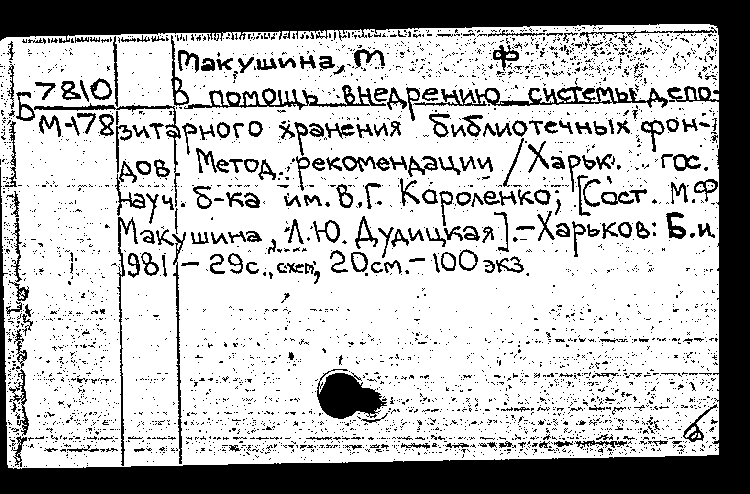 Макушина, М Ф
Б 7810 В помощь внедрению системы депо-
М-178 зитарного хранения библиотечных фон-
дов: Метод. рекомендации / Харьк. гос.
науч. б-ка им. В.Г. Короленко; [Сост. М.Ф
Макушина, Л.Ю. Дудицкая].-Харьков: Б.и
1981.- 29с., схем; 20см.- 100 экз.